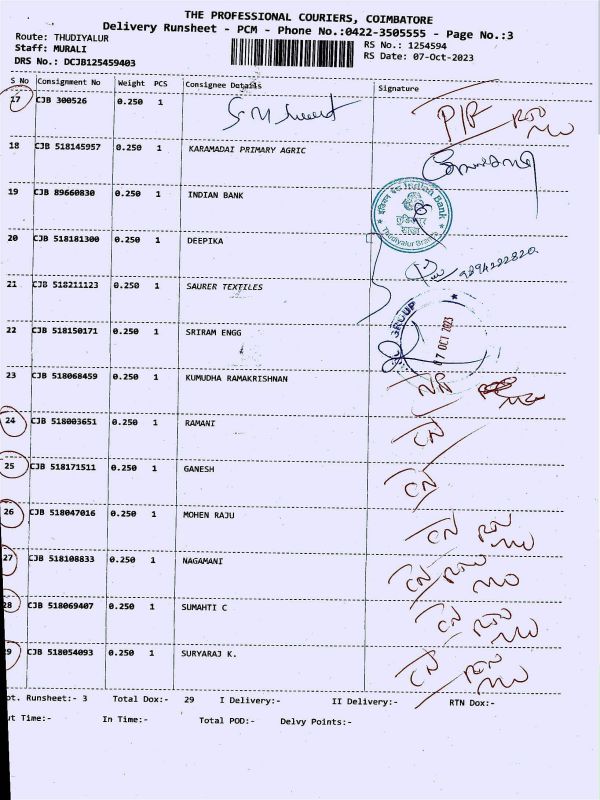 THE PROFESSIONAL COURIERS, COIMBATORE
Delivery Runsheet - PCM - Phone No.:0422-3505555 - Page No.:3
Route: THUDIYALUR
Staff: MURALI
DRS No.: DCJB125459403
RS No.: 1254594
RS Date: 07-Oct-2023
S No Consignment No Weight PCS Consignee Details Signature
17 CJB 300526 0.250 1
RTO
18 CJB 518145957 0.250 1 KARAMADAI PRIMARY AGRIC
19 CJB 89660830 0.250 1 INDIAN BANK
इंडियन बैंक Indian Bank
Thudiyalur Branch
20 CJB 518181300 0.250 1 DEEPIKA
9894222820
21 CJB 518211123 0.250 1 SAURER TEXTILES
GROUP
07 OCT 2023
22 CJB 518150171 0.250 1 SRIRAM ENGG
23 CJB 518068459 0.250 1 KUMUDHA RAMAKRISHNAN
24 CJB 518003651 0.250 1 RAMANI CN
25 CJB 518171511 0.250 1 GANESH CN
26 CJB 518047016 0.250 1 MOHEN RAJU CN RTO
27 CJB 518108833 0.250 1 NAGAMANI CN RTO
28 CJB 518069407 0.250 1 SUMAHTI C CN RTO
29 CJB 518054093 0.250 1 SURYARAJ K. CN RTO
ot. Runsheet:- 3 Total Dox:- 29 I Delivery:- II Delivery:- RTN Dox:-
ut Time:- In Time:- Total POD:- Delvy Points:-